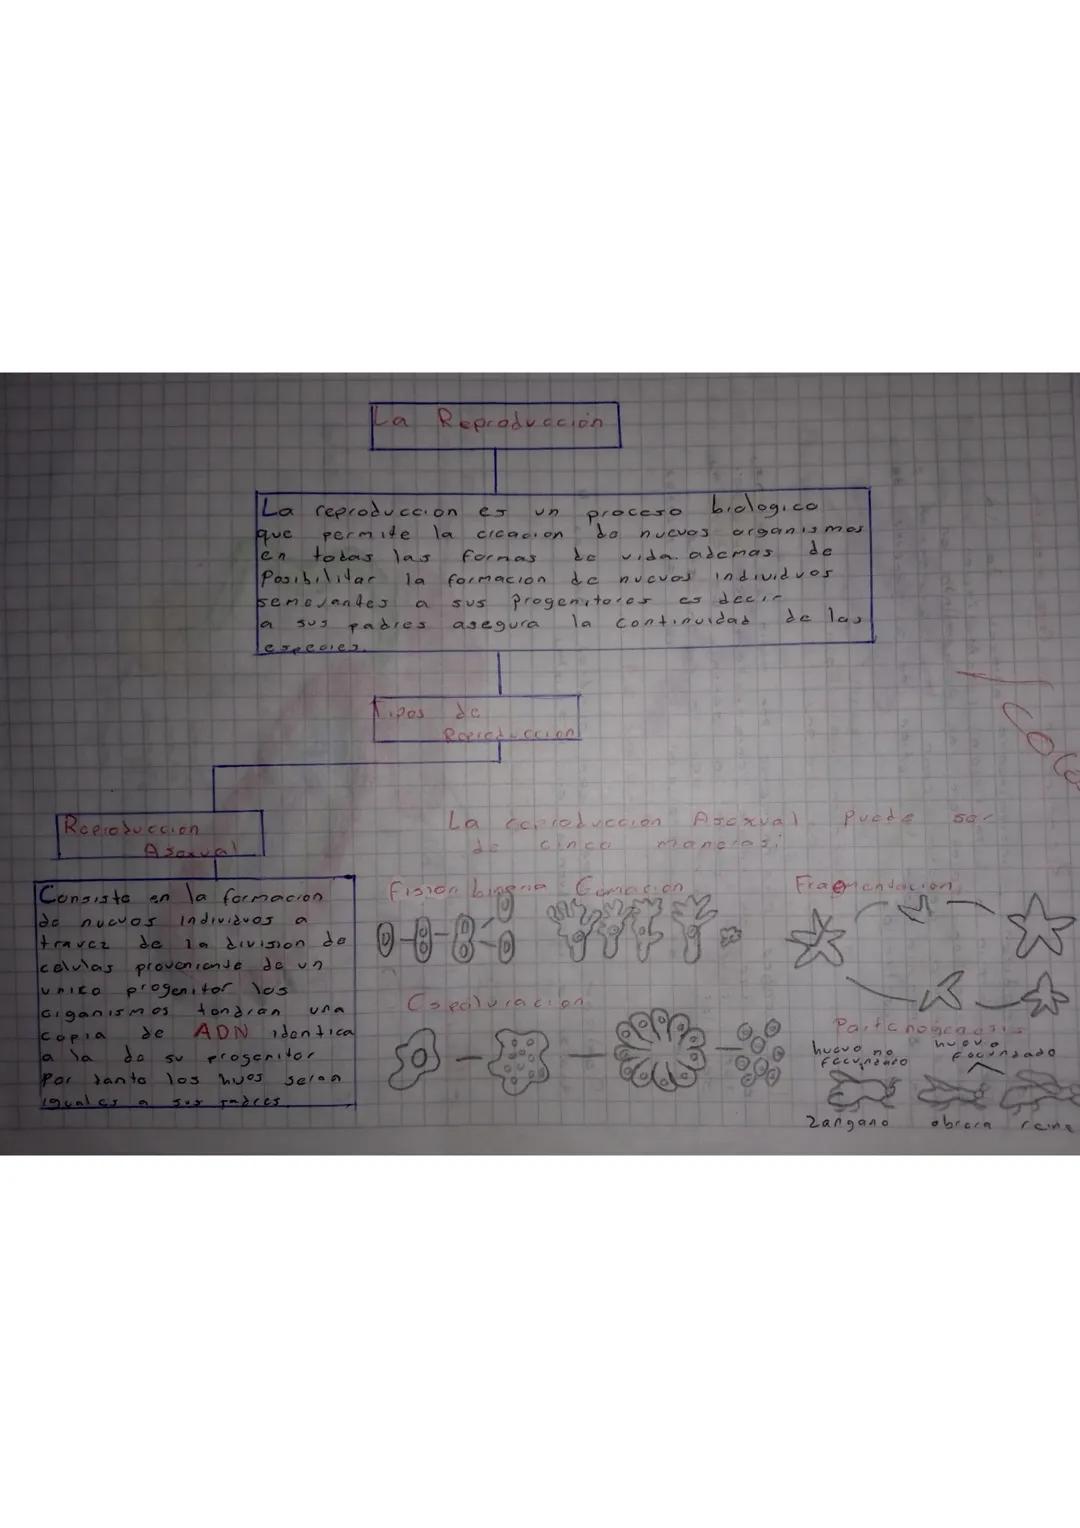 La Reproduccion
La reproduccion es un proceso biologico
que permite la creacion de nuevos organismos
en todas las formas de vida. ademas de
Posibilitar la formacion de nuevos individuos
semejantes a sus Progenitores es decir
a sus padres asegura la continuidad de las
especies.
Tipos de
Reproduccion
Reproduccion
Asexual
Consiste en la formacion
de nuevos individuos a
travez de la division de
celulas proveniente de un
unico progenitor los
organismos tendran una
copia de ADN identica
a la de su progenitor
Por tanto los hijos seran
iguales a sus padres
La reproduccion Asexual Puede ser
de cinco maneras:
Fision binaria Gemacion
Fragmentacion
Esporuracion
Partenogenesis
huevo no
fecundado
huevo
fecundado
Zangano obrera reina